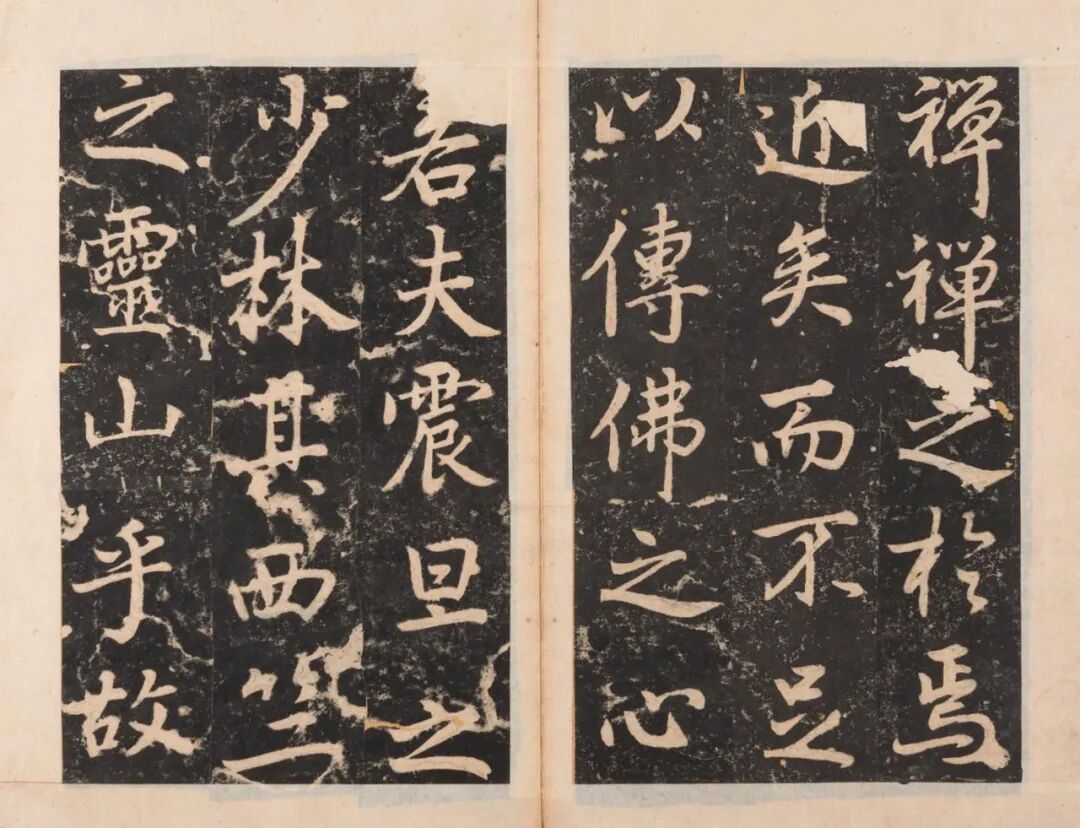 禅禅之於焉
近矣而不足
以傳佛之心
若夫震旦之
少林其西竺
之靈山乎故